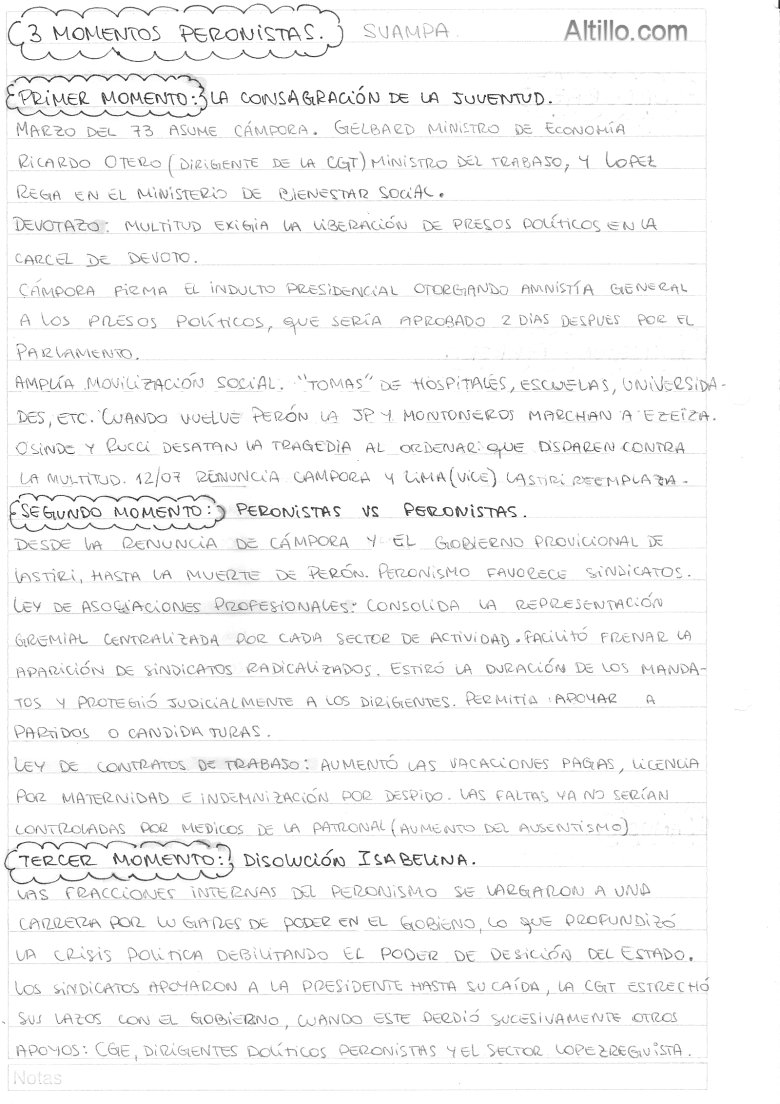 3 MOMENTOS PERONISTAS. SVAMPA. Altillo.com
PRIMER MOMENTO: LA CONSAGRACIÓN DE LA JUVENTUD.
MARZO DEL 73 ASUME CÁMPORA. GELBARD MINISTRO DE ECONOMÍA
RICARDO OTERO (DIRIGENTE DE LA CGT) MINISTRO DEL TRABAJO, Y LOPEZ
REGA EN EL MINISTERIO DE BIENESTAR SOCIAL.
DEVOTAZO: MULTITUD EXIGIA LA LIBERACIÓN DE PRESOS POLÍTICOS EN LA
CARCEL DE DEVOTO.
CÁMPORA FIRMA EL INDULTO PRESIDENCIAL OTORGANDO AMNISTÍA GENERAL
A LOS PRESOS POLÍTICOS, QUE SERÍA APROBADO 2 DIAS DESPUES POR EL
PARLAMENTO.
AMPLÍA MOVILIZACIÓN SOCIAL. "TOMAS" DE HOSPITALES, ESCUELAS, UNIVERSIDA-
DES, ETC. CUANDO VUELVE PERÓN LA JP Y MONTONEROS MARCHAN A EZEIZA.
OSINDE Y RUCCI DESATAN LA TRAGEDIA AL ORDENAR QUE DISPAREN CONTRA
LA MULTITUD. 12/07 RENUNCIA CAMPORA Y LIMA (VICE) LASTIRI REEMPLAZA.
SEGUNDO MOMENTO: PERONISTAS VS PERONISTAS.
DESDE LA RENUNCIA DE CÁMPORA Y EL GOBIERNO PROVICIONAL DE
LASTIRI, HASTA LA MUERTE DE PERÓN. PERONISMO FAVORECE SINDICATOS.
LEY DE ASOCIACIONES PROFESIONALES: CONSOLIDA LA REPRESENTACIÓN
GREMIAL CENTRALIZADA POR CADA SECTOR DE ACTIVIDAD. FACILITÓ FRENAR LA
APARICIÓN DE SINDICATOS RADICALIZADOS. ESTIRÓ LA DURACIÓN DE LOS MANDA-
TOS Y PROTEGIÓ JUDICIALMENTE A LOS DIRIGENTES. PERMITIA APOYAR A
PARTIDOS O CANDIDATURAS.
LEY DE CONTRATOS DE TRABAJO: AUMENTÓ LAS VACACIONES PAGAS, LICENCIA
POR MATERNIDAD E INDEMNIZACIÓN POR DESPIDO. LAS FALTAS YA NO SERÍAN
CONTROLADAS POR MEDICOS DE LA PATRONAL (AUMENTO DEL AUSENTISMO)
TERCER MOMENTO: DISOLUCIÓN ISABELINA.
LAS FRACCIONES INTERNAS DEL PERONISMO SE LARGARON A UNA
CARRERA POR LUGARES DE PODER EN EL GOBIENO, LO QUE PROFUNDIZÓ
LA CRISIS POLITICA DEBILITANDO EL PODER DE DESICIÓN DEL ESTADO.
LOS SINDICATOS APOYARON A LA PRESIDENTE HASTA SU CAÍDA, LA CGT ESTRECHÓ
SUS LAZOS CON EL GOBIERNO, CUANDO ESTE PERDIÓ SUCESIVAMENTE OTROS
APOYOS: CGE, DIRIGENTES POLÍTICOS PERONISTAS Y EL SECTOR LOPEZREGUISTA.
Notas